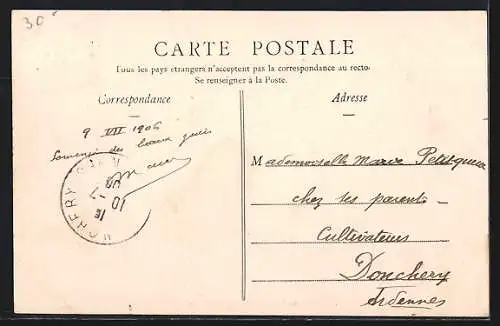 30
CARTE POSTALE
Tous les pays étrangers n'acceptent pas la correspondance au recto.
Se renseigner à la Poste.
Correspondance
Adresse
9 VII 1906
Souvenir des beaux jours
Mademoiselle
chez ses parents
Cultivateurs
Donchery
Ardennes
10 -7
CHERY